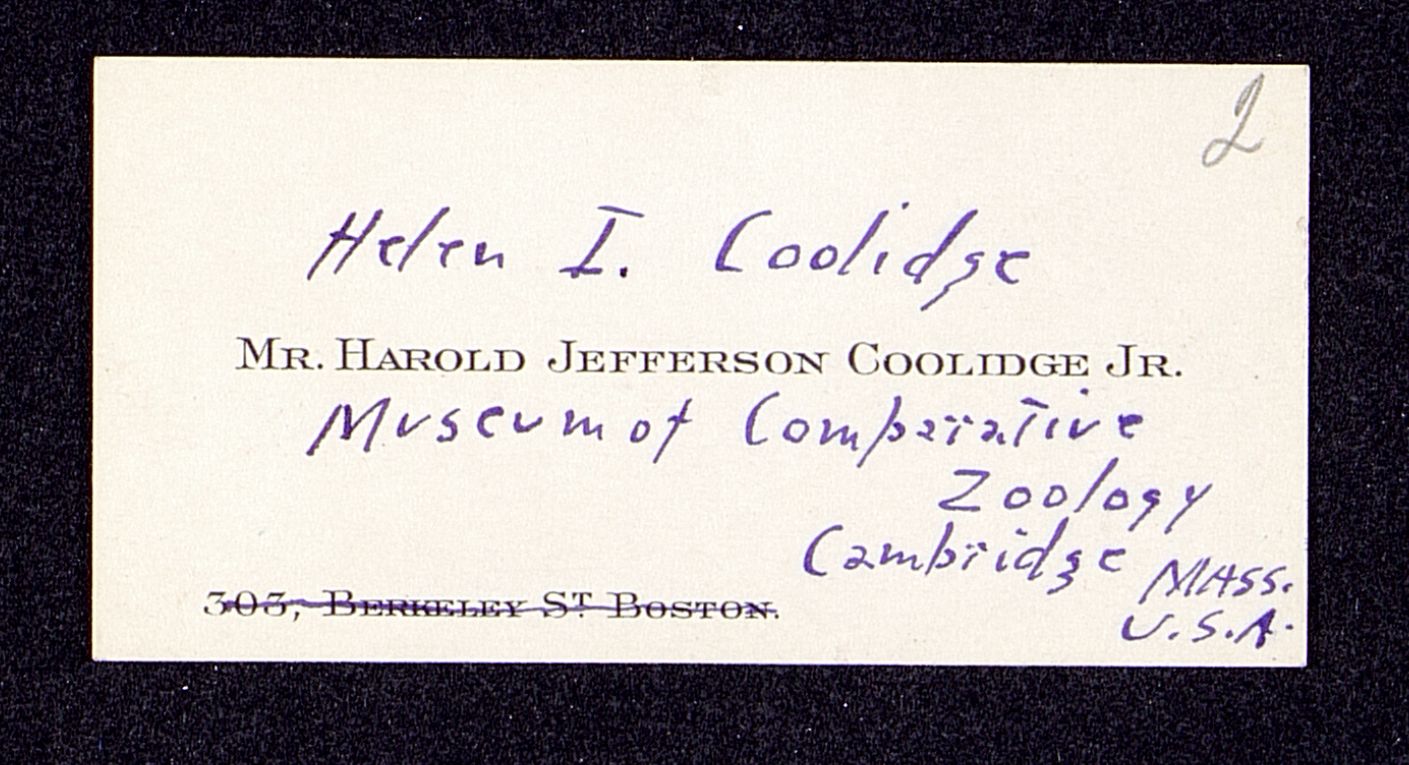 2
Helen I. Coolidge
MR. HAROLD JEFFERSON COOLIDGE JR.
Museum of Comparative
Zoology
Cambridge MASS.
U.S.A.
303, BERKELEY ST BOSTON.